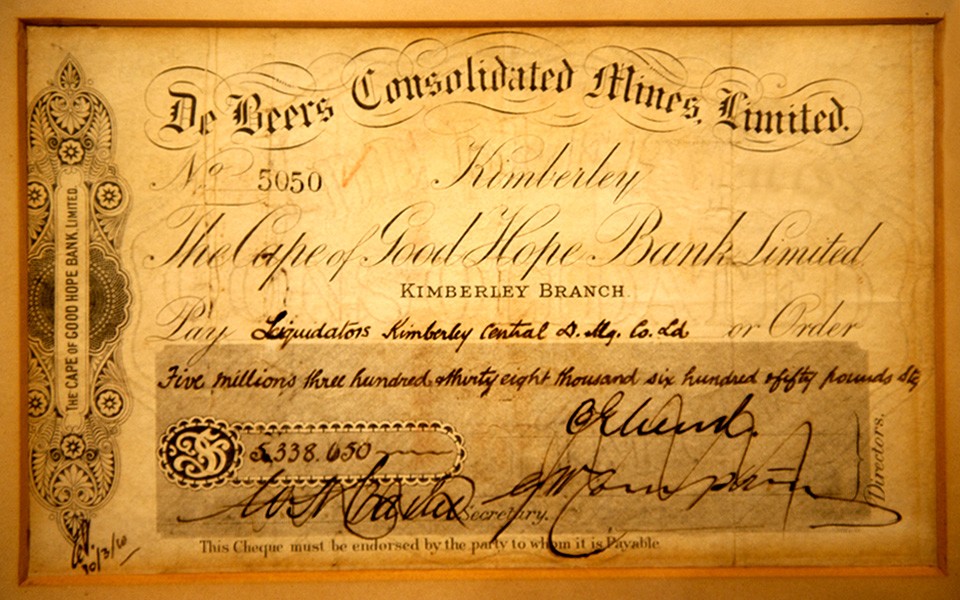 De Beers Consolidated Mines, Limited.
No 5050 Kimberley
The Cape of Good Hope Bank Limited
KIMBERLEY BRANCH.
Pay Liquidators Kimberley Central D. Mg. Co. Ld or Order
Five millions three hundred & thirty eight thousand six hundred & fifty pounds Stg
£ 5,338.650
Secretary.
Directors.
This Cheque must be endorsed by the party to whom it is Payable.
THE CAPE OF GOOD HOPE BANK, LIMITED.